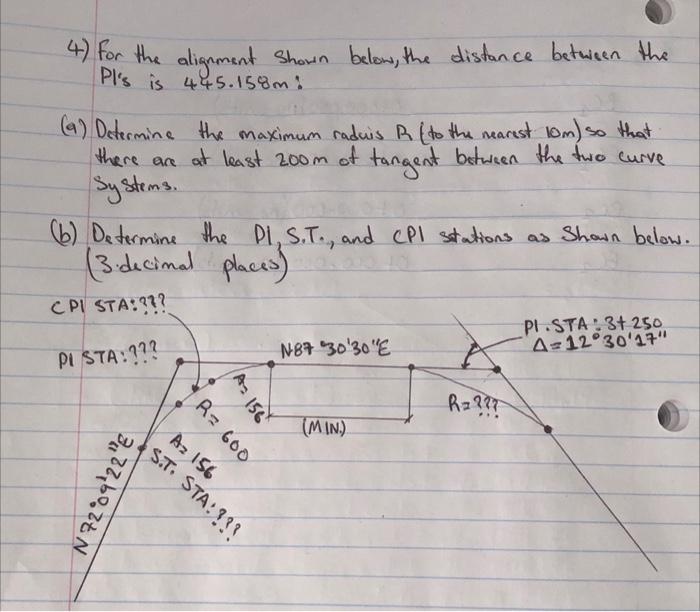 4) For the alignment shown below, the distance between the
PI's is 445.158m:
(a) Determine the maximum raduis R (to the nearest 10m) so that
there are at least 200m of tangent between the two curve
systems.
(b) Determine the PI, S.T., and CPI stations as shown below.
(3 decimal places)
CPI STA:???
PI STA:???
N87°30'30"E
PI.STA:3+250
Δ=12°30'17"
A=156
R=600
A=156
S.T. STA:???
(MIN.)
R=???
N72°09'22"E